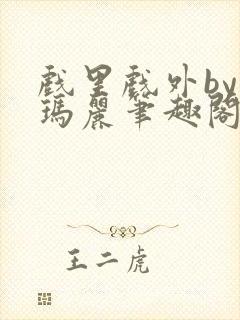 戲里戲外by
瑪麗筆趣閣
王二虎